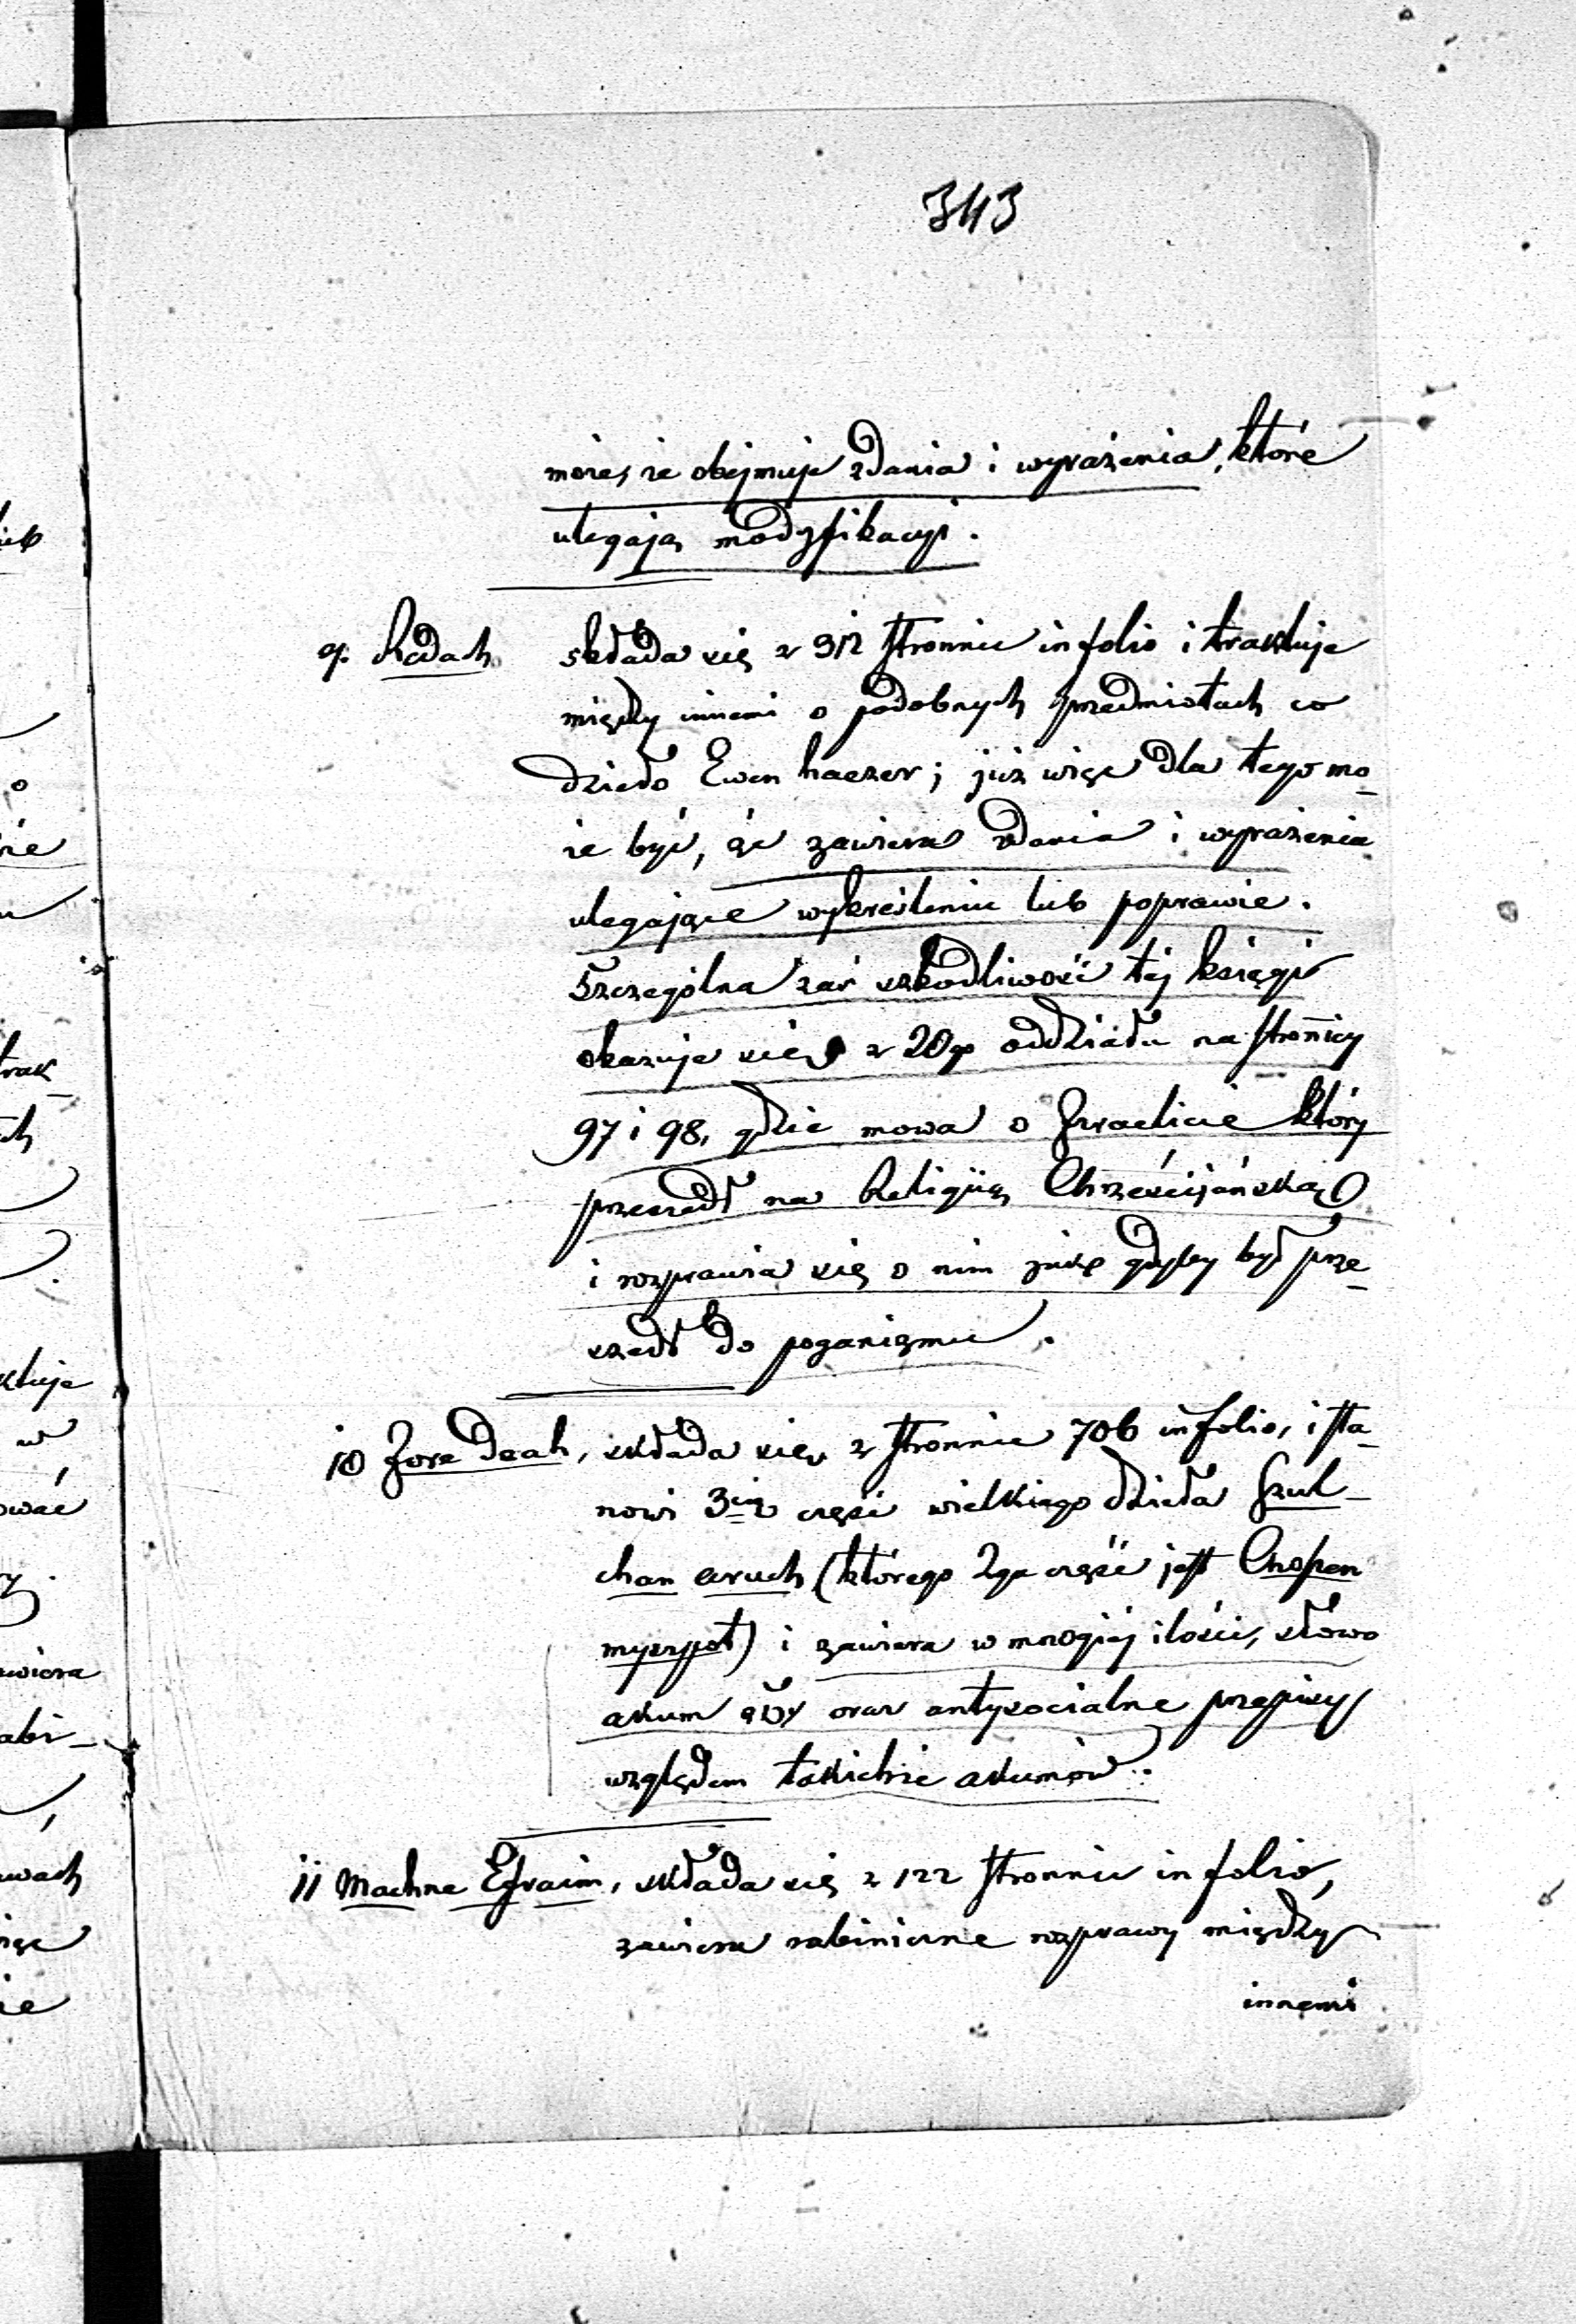 343
może, że obejmuje zdania i wyrażenia, które
ulegają modyfikacyi.
9. Redach składa się z 312 stronnic in folio i traktuje
między innemi o podobnych przedmiotach co
dzieło Ewen haezer; już więc dla tego mo-
że być, że zawiera zdania i wyrażenia
ulegające wykreśleniu lub poprawie.
Szczególna zaś szkodliwość tej księgi
okazuje się z 20go oddziału na stronicy
97 i 98, gdzie mowa o Izraelicie który
przeszedł na Religiją Chrześcijańską
i rozprawia się o nim jak gdyby był prze-
szedł do poganizmu.
10 Jore deah, składa się z stronnic 706 in folio, i sta-
nowi 3cią część wielkiego dzieła Szul-
chan aruch (którego 2ga część jest Choszen
myszpot) i zawiera w mnogiej ilości, słowo
akum oraz antysocialne przepisy
względem takichże akumów.
11 Machne Efraim, składa się z 122 stronnic in folio,
zawiera rabiniczne rozprawy między
innemi